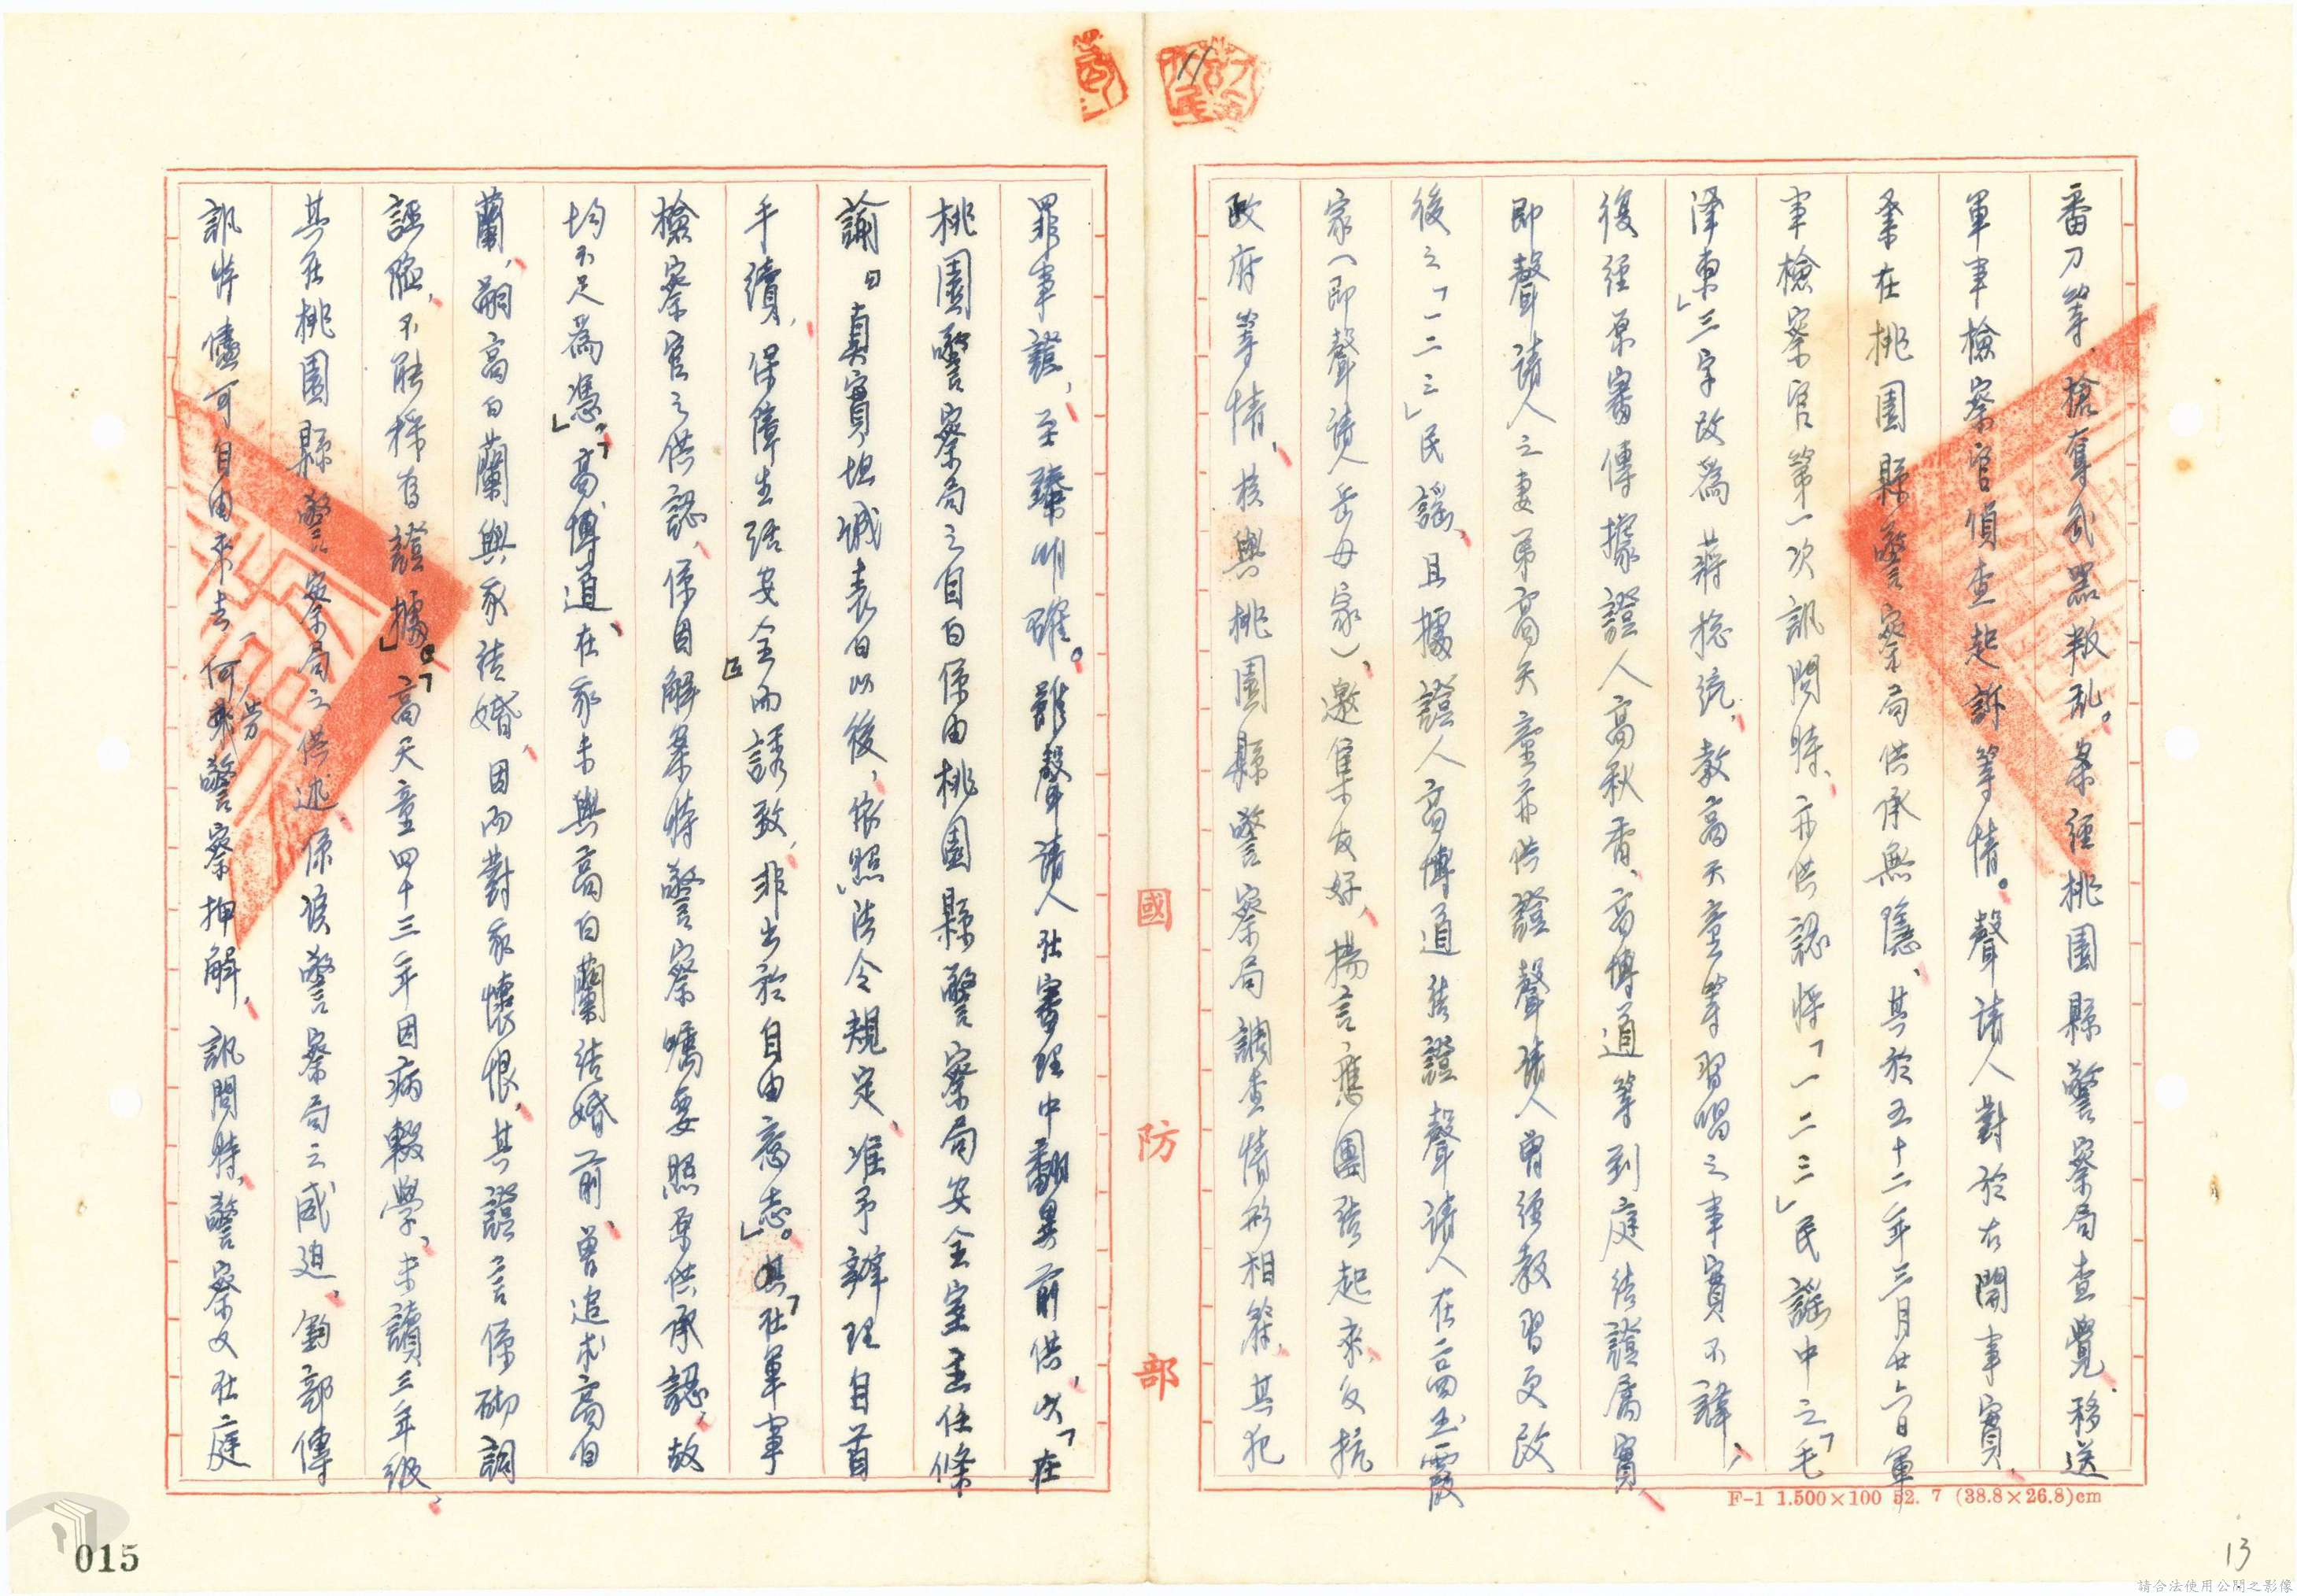 番刀等、槍奪武器叛亂。案經桃園縣警察局查覺、移送
軍事檢察官偵查起訴等情。聲請人對於右開事實、
業在桃園縣警察局供承無隱、其於五十二年三月廿六日軍
事檢察官第一次訊問時、亦供認將「一二三」民謠中之「毛
澤東」三字改為蔣總統、教高天童等習唱之事實不諱、
復經原審傳據證人高秋香、高博道等到庭結證屬實、
即聲請人之妻弟高天童亦供證聲請人曾經教習更改
後之「一二三」民謠、且據證人高博道結證聲請人在高玉霞
家（即聲請人岳母家）、邀集友好、揚言應團結起來、反抗
政府等情、核與桃園縣警察局調查情形相符、其犯
罪事證、至臻明確。雖聲請人在審理中翻異前供、以「在
桃園警察局之自白係由桃園縣警察局安全室主任條
諭『真實坦誠表白以後、依照法令規定、准予辦理自首
手續、保障生活安全』而誘致、非出於自由意志」。其「在軍事
檢察官之供認、係因解案時警察囑要照原供承認、故
均不足為憑」、「高博道、在我未與高白蘭結婚前、曾追求高白
蘭、嗣高白蘭與我結婚、因而對我懷恨、其證言係砌詞
誣陷、不能稱有證據」。「高天童四十三年因病輟學、未讀三年級、
其在桃園縣警察局之供述、係該警察局之威迫、鈞部傳
訊時儘可自由來去、何勞警察押解、訊問時、警察又在庭
國防部
F-1 1.500×100 52. 7 (38.8×26.8)cm
11
13
015
請合法使用公開之影像